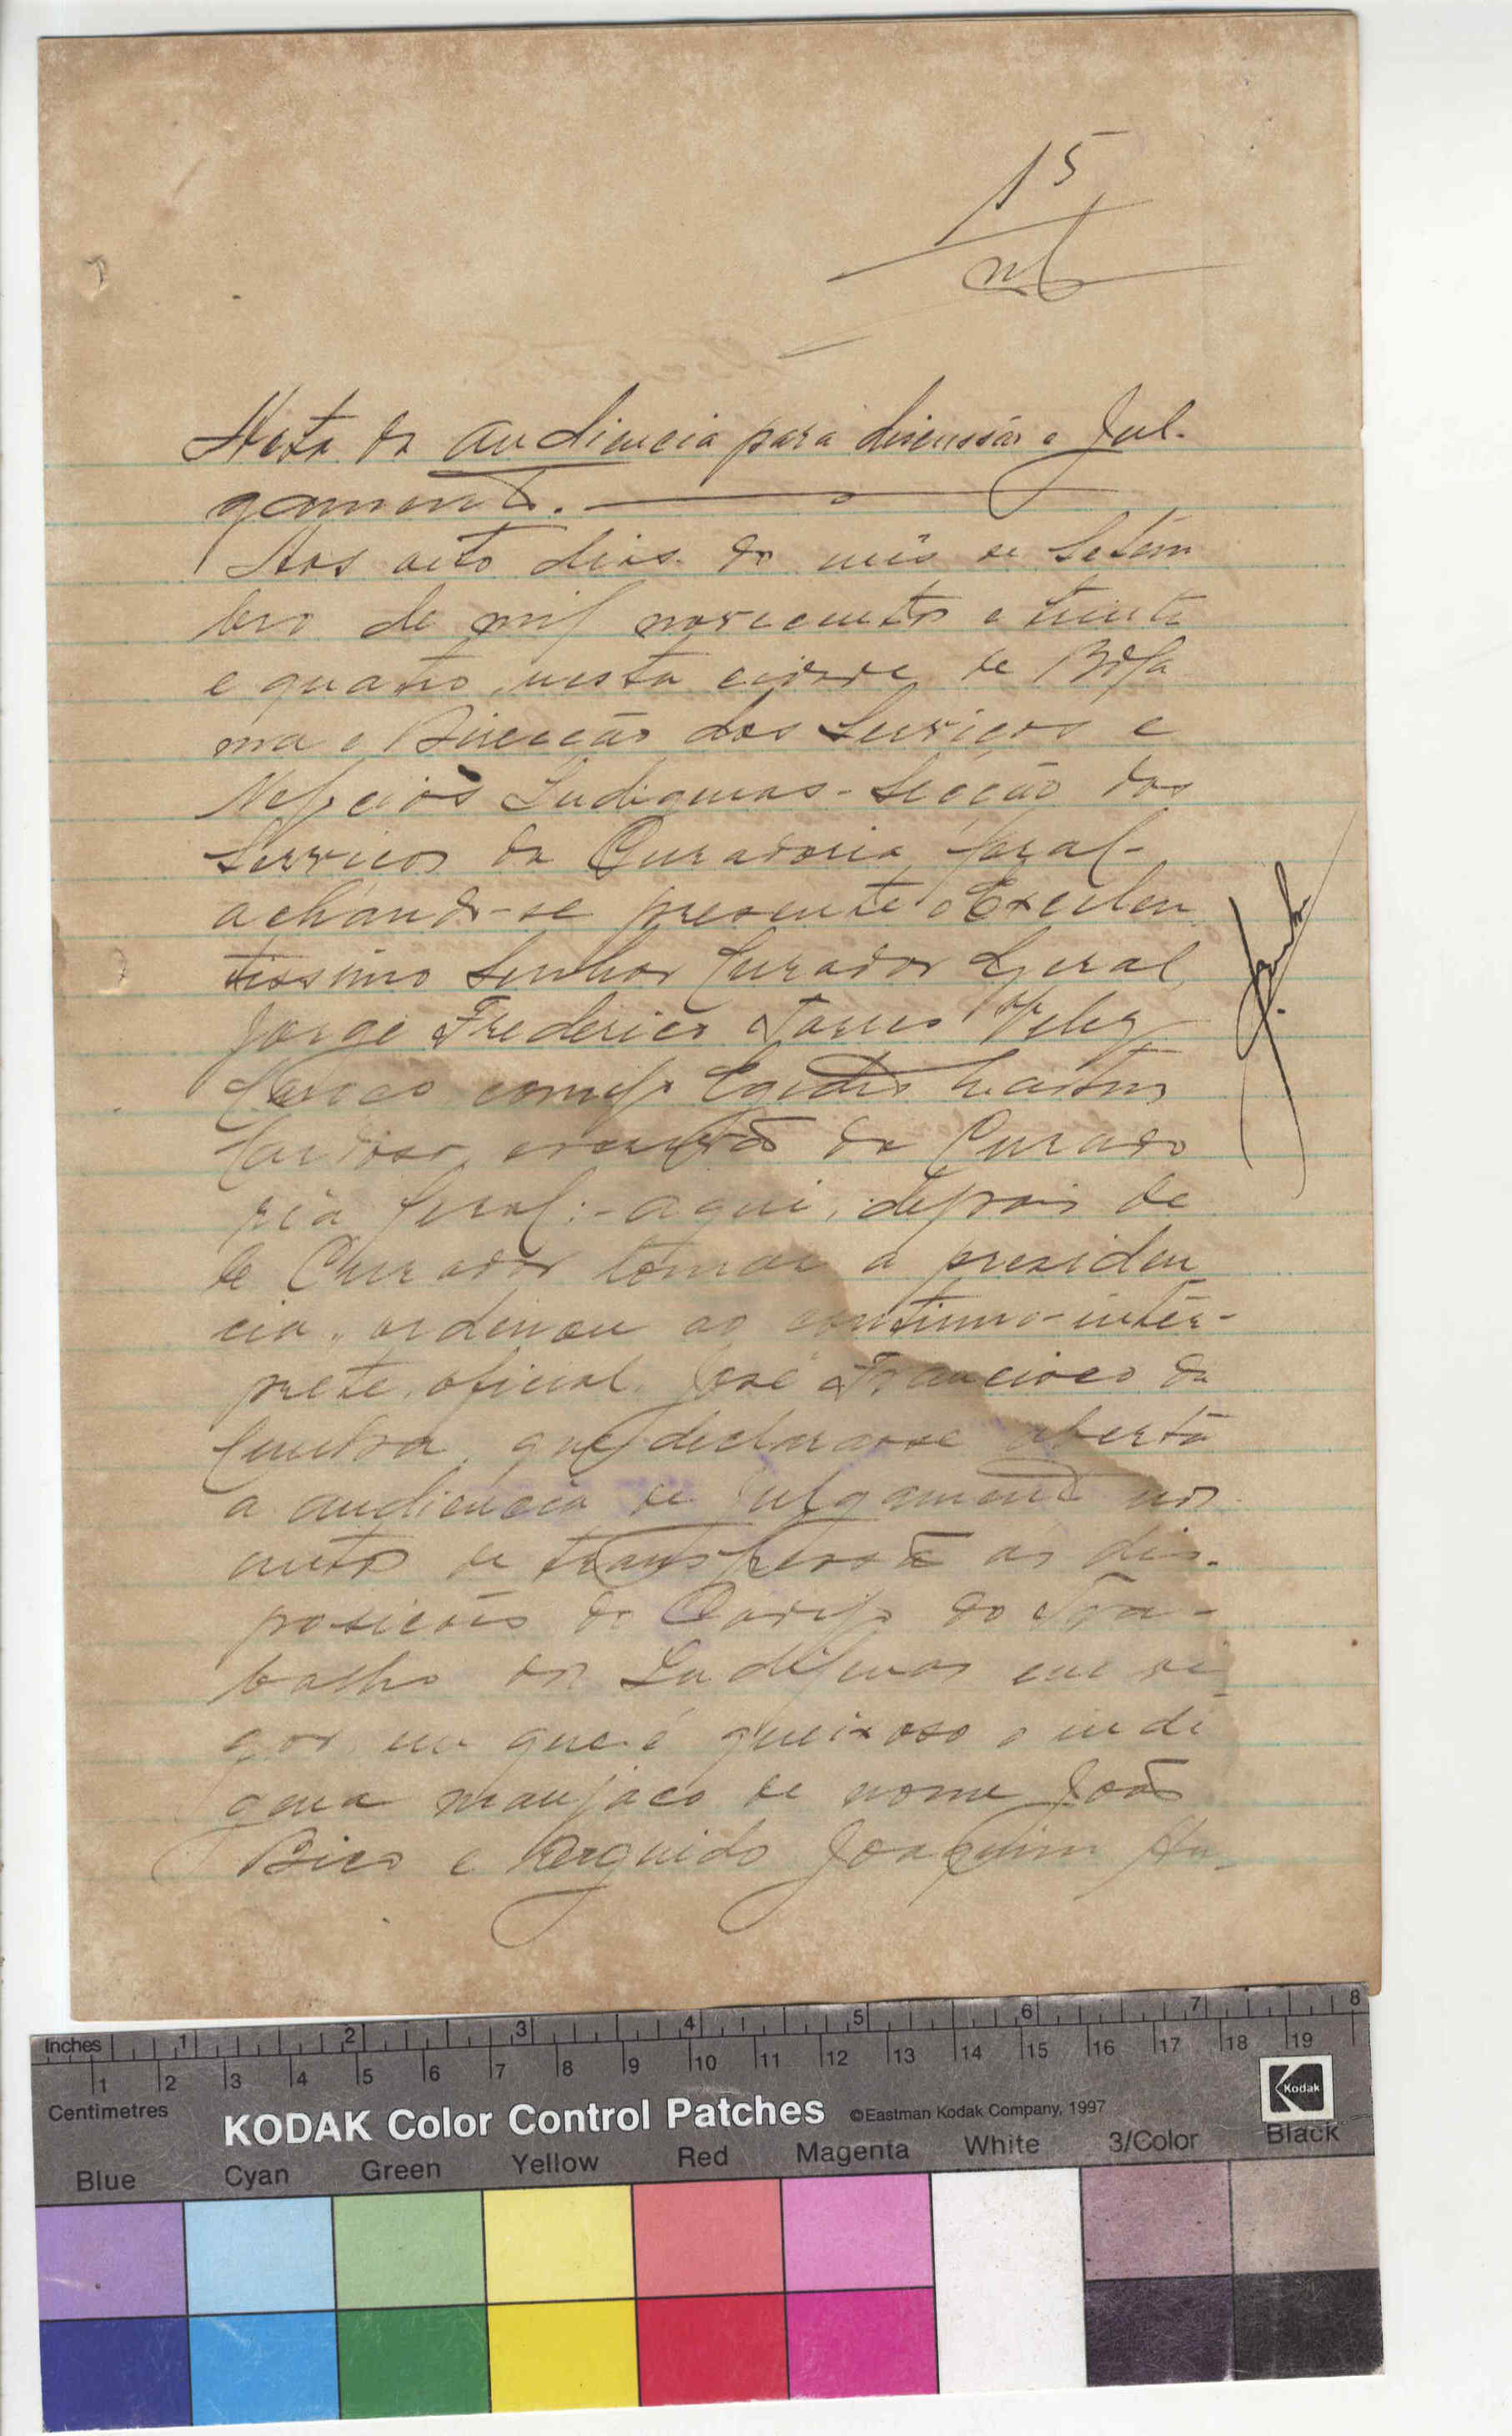 15
Acta da audiencia para discussão e Jul-
gamento.
Aos oito dias do mês de Setem
bro de mil novecentos e trinta
e quatro, nesta cidade de Bola
ma e Direcção dos Serviços e
Negocios Indigenas - Secção dos
Serviços da Curadoria Geral -
achando-se presente o Excelen
tissimo Senhor Curador Geral,
Jorge Frederico Torres Velez
Caroço, comigo Martins
Cardoso, escrivão da Curado
ria Geral: - aqui, depois de
le Curador tomar a presiden
cia, ordenou ao continuo-intér-
prete, oficial, José Francisco da
que declarasse aberta
a audiencia de julgamento nos
autos de transgressão as dis-
posicões do Codigo do Tra-
balho dos Indigenas em vi
gor em que é queixoso o indi
gena manjaco de nome João
Bico e Arguido Joaquim An-
Inches 1 2 3 4 5 6 7 8
1 2 3 4 5 6 7 8 9 10 11 12 13 14 15 16 17 18 19
Centimetres
KODAK Color Control Patches ©Eastman Kodak Company, 1997
Kodak
Blue Cyan Green Yellow Red Magenta White 3/Color Black